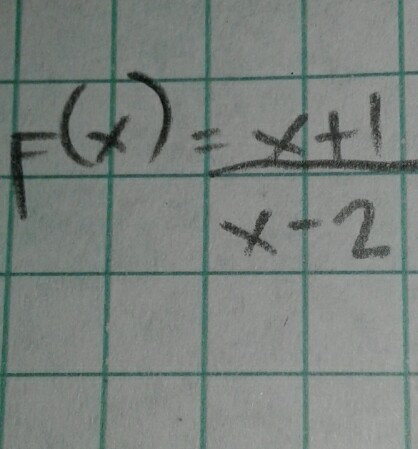 F(x) = x+1
x-2